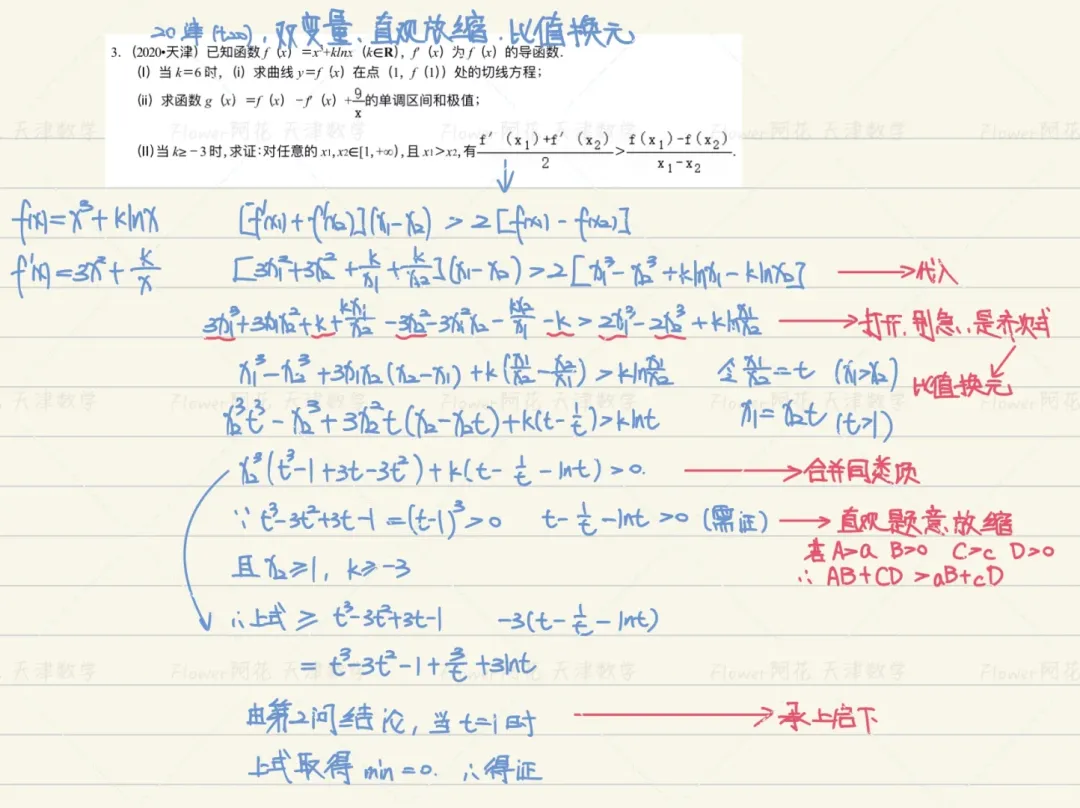 20津(t20), 双变量、直观放缩、比值换元
3. (2020•天津) 已知函数 f (x) =x³+klnx (k∈R), f′ (x) 为 f (x) 的导函数.
(I) 当 k=6 时, (i) 求曲线 y=f (x) 在点 (1, f (1)) 处的切线方程;
(ii) 求函数 g (x) =f (x) -f′ (x) +9/x 的单调区间和极值;
(II)当 k≥-3 时, 求证: 对任意的 x₁,x₂∈[1,+∞), 且 x₁>x₂, 有 (f′(x₁)+f′(x₂))/2 > (f(x₁)-f(x₂))/(x₁-x₂).
f(x)=x³+klnx
[f′(x₁)+f′(x₂)](x₁-x₂) > 2[f(x₁)-f(x₂)]
f′(x)=3x²+k/x
[3x₁²+3x₂²+k/x₁+k/x₂](x₁-x₂)>2[x₁³-x₂³+klnx₁-klnx₂] → 代入
3x₁³+3x₁x₂²+k+kx₁/x₂-3x₂³-3x₁²x₂-kx₂/x₁-k>2x₁³-2x₂³+kln x₁/x₂ → 打开, 别急, 是齐次式
x₁³-x₂³+3x₁x₂(x₂-x₁)+k(x₁/x₂-x₂/x₁)>kln x₁/x₂ 令 x₁/x₂=t (x₁>x₂) 比值换元
x₂³t³-x₂³+3x₂²t(x₂-x₂t)+k(t-1/t)>klnt x₁=x₂t (t>1)
x₂³(t³-1+3t-3t²)+k(t-1/t-lnt)>0. → 合并同类项
∵ t³-3t²+3t-1=(t-1)³>0 t-1/t-lnt>0 (需证) → 直观题意放缩
若 A>a B>0 C>c D>0
且 x₂≥1, k≥-3
∴ AB+CD >aB+cD
∴上式 ≥ t³-3t²+3t-1 -3(t-1/t-lnt)
= t³-3t²-1+3/t+3lnt
由第2问结论, 当 t=1 时 → 承上启下
上式取得 min=0. ∴得证
Flower阿花 天津数学